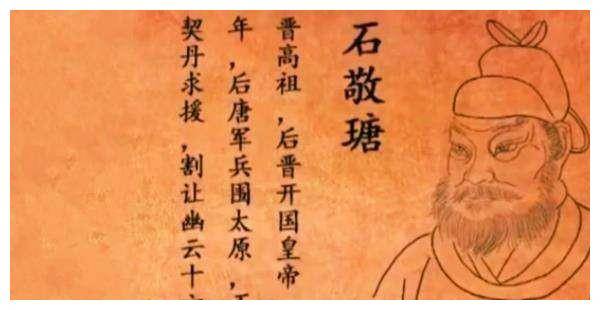 石敬瑭
晋高祖，后晋开国皇帝
年，后唐军兵围太原，
契丹求援，割让幽云十